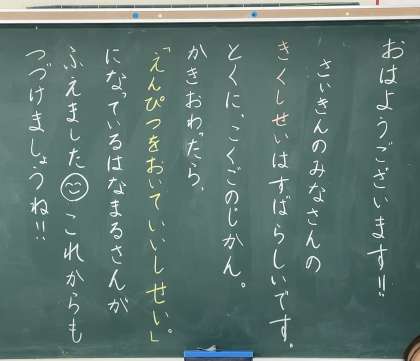 おはようございます!!
さいきんのみなさんの
きくしせいはすばらしいです。
とくに、こくごのじかん。
かきおわったら、
「えんぴつをおいていいしせい」。
になっているはなまるさんが
ふえました😊これからも
つづけましょうね!!